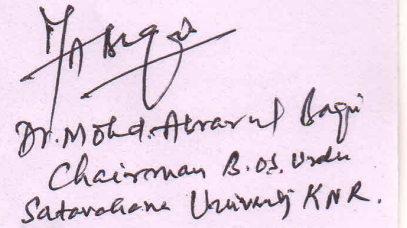 M A Baqi
Dr. Mohd. Abrarul Baqi
Chairman B.OS. Urdu
Satavahana University KNR.